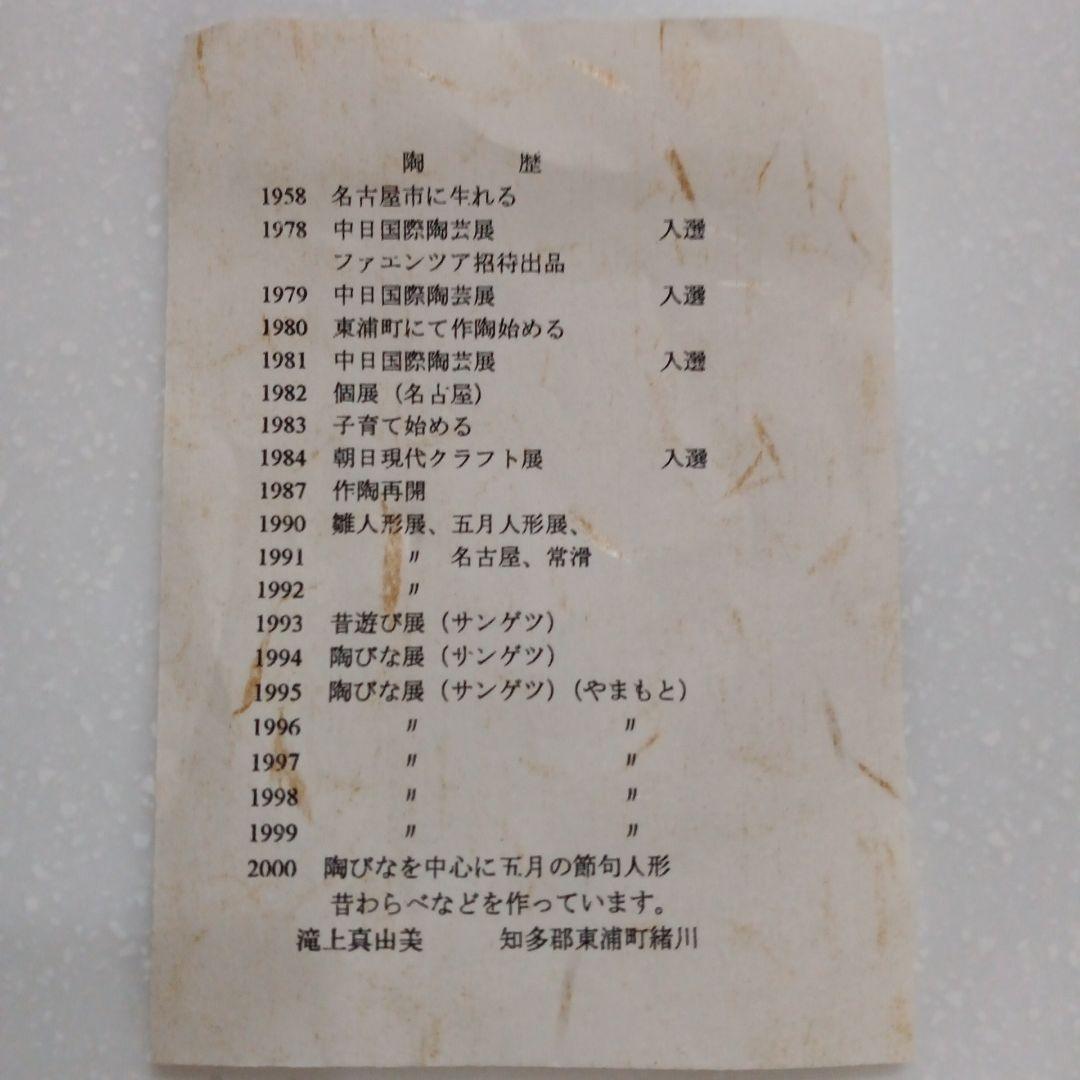 陶　歴
1958 名古屋市に生れる
1978 中日国際陶芸展 入選
ファエンツア招待出品
1979 中日国際陶芸展 入選
1980 東浦町にて作陶始める
1981 中日国際陶芸展 入選
1982 個展（名古屋）
1983 子育て始める
1984 朝日現代クラフト展 入選
1987 作陶再開
1990 雛人形展、五月人形展、
1991 〃 名古屋、常滑
1992 〃
1993 昔遊び展（サンゲツ）
1994 陶びな展（サンゲツ）
1995 陶びな展（サンゲツ）（やまもと）
1996 〃 〃
1997 〃 〃
1998 〃 〃
1999 〃 〃
2000 陶びなを中心に五月の節句人形
昔わらべなどを作っています。
滝上真由美 知多郡東浦町緒川